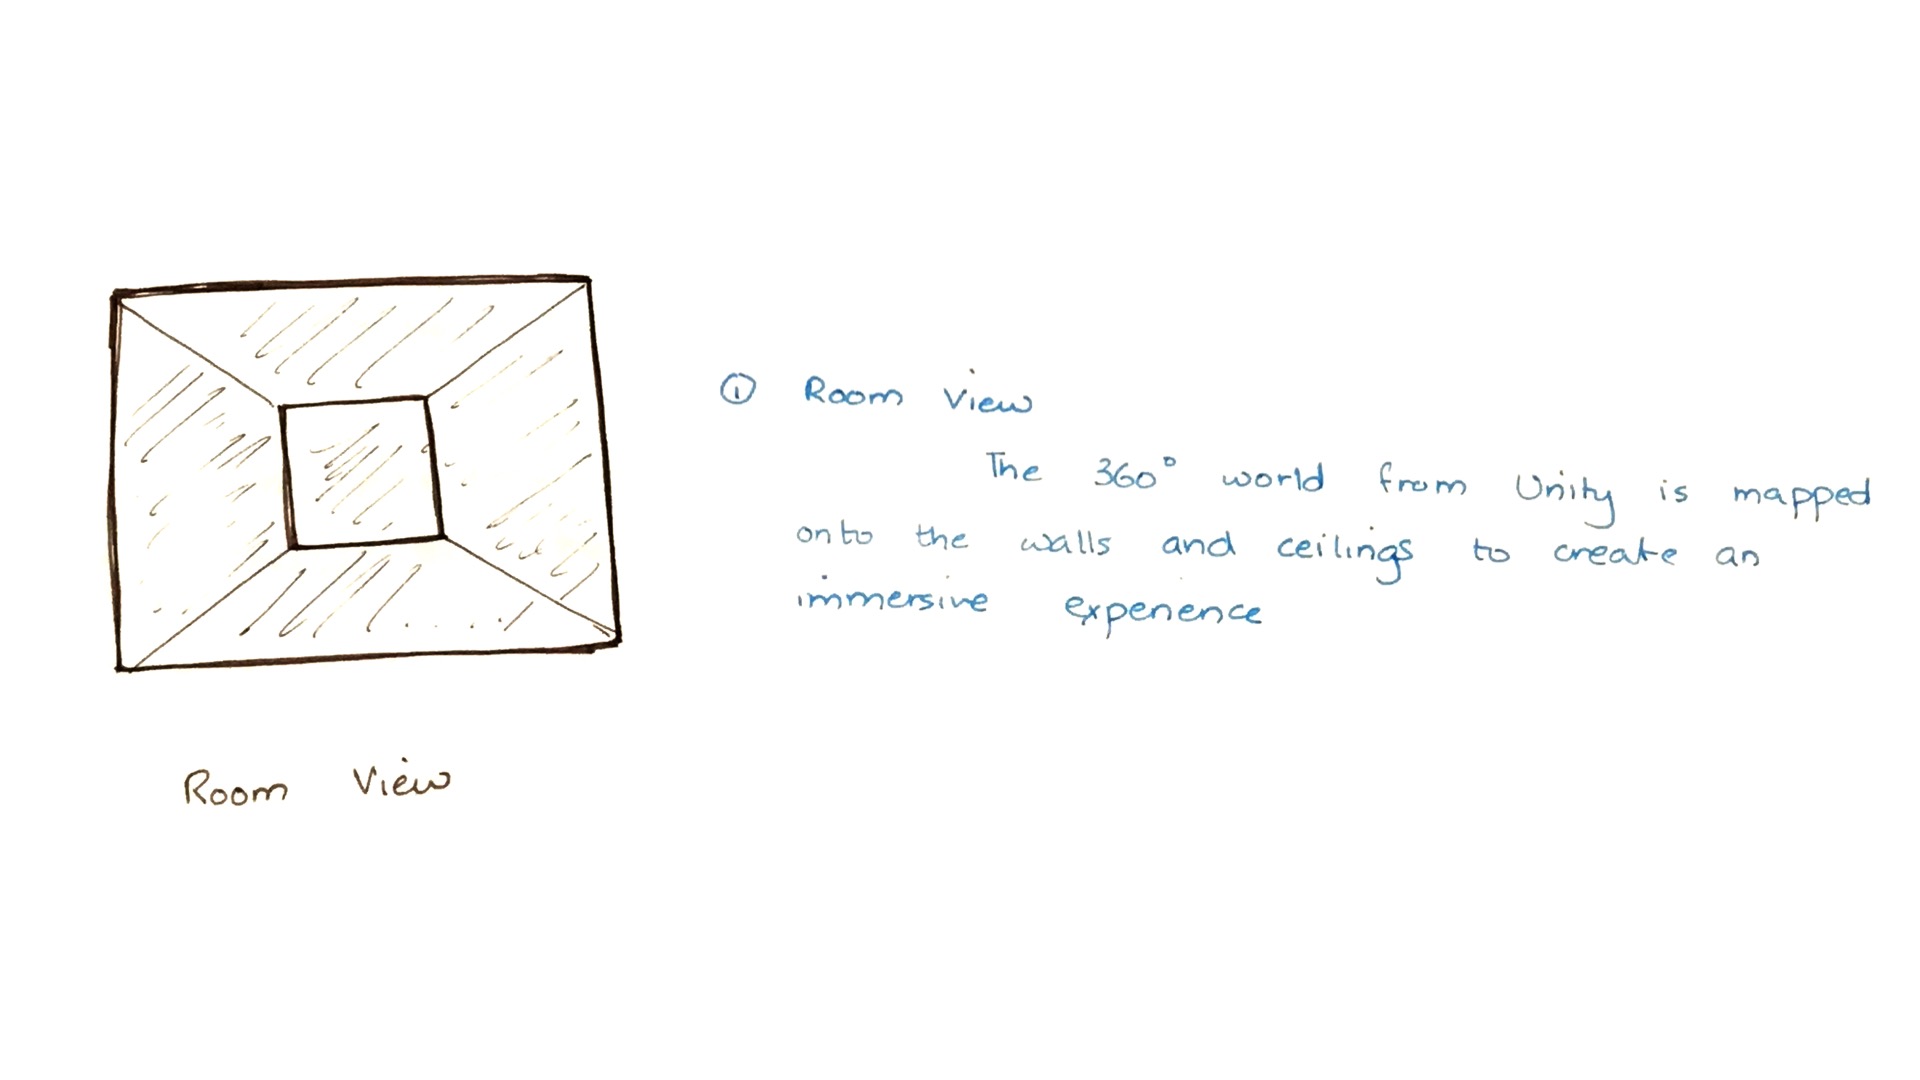 ① Room View
The 360° world from Unity is mapped
onto the walls and ceilings to create an
immersive experience
Room View